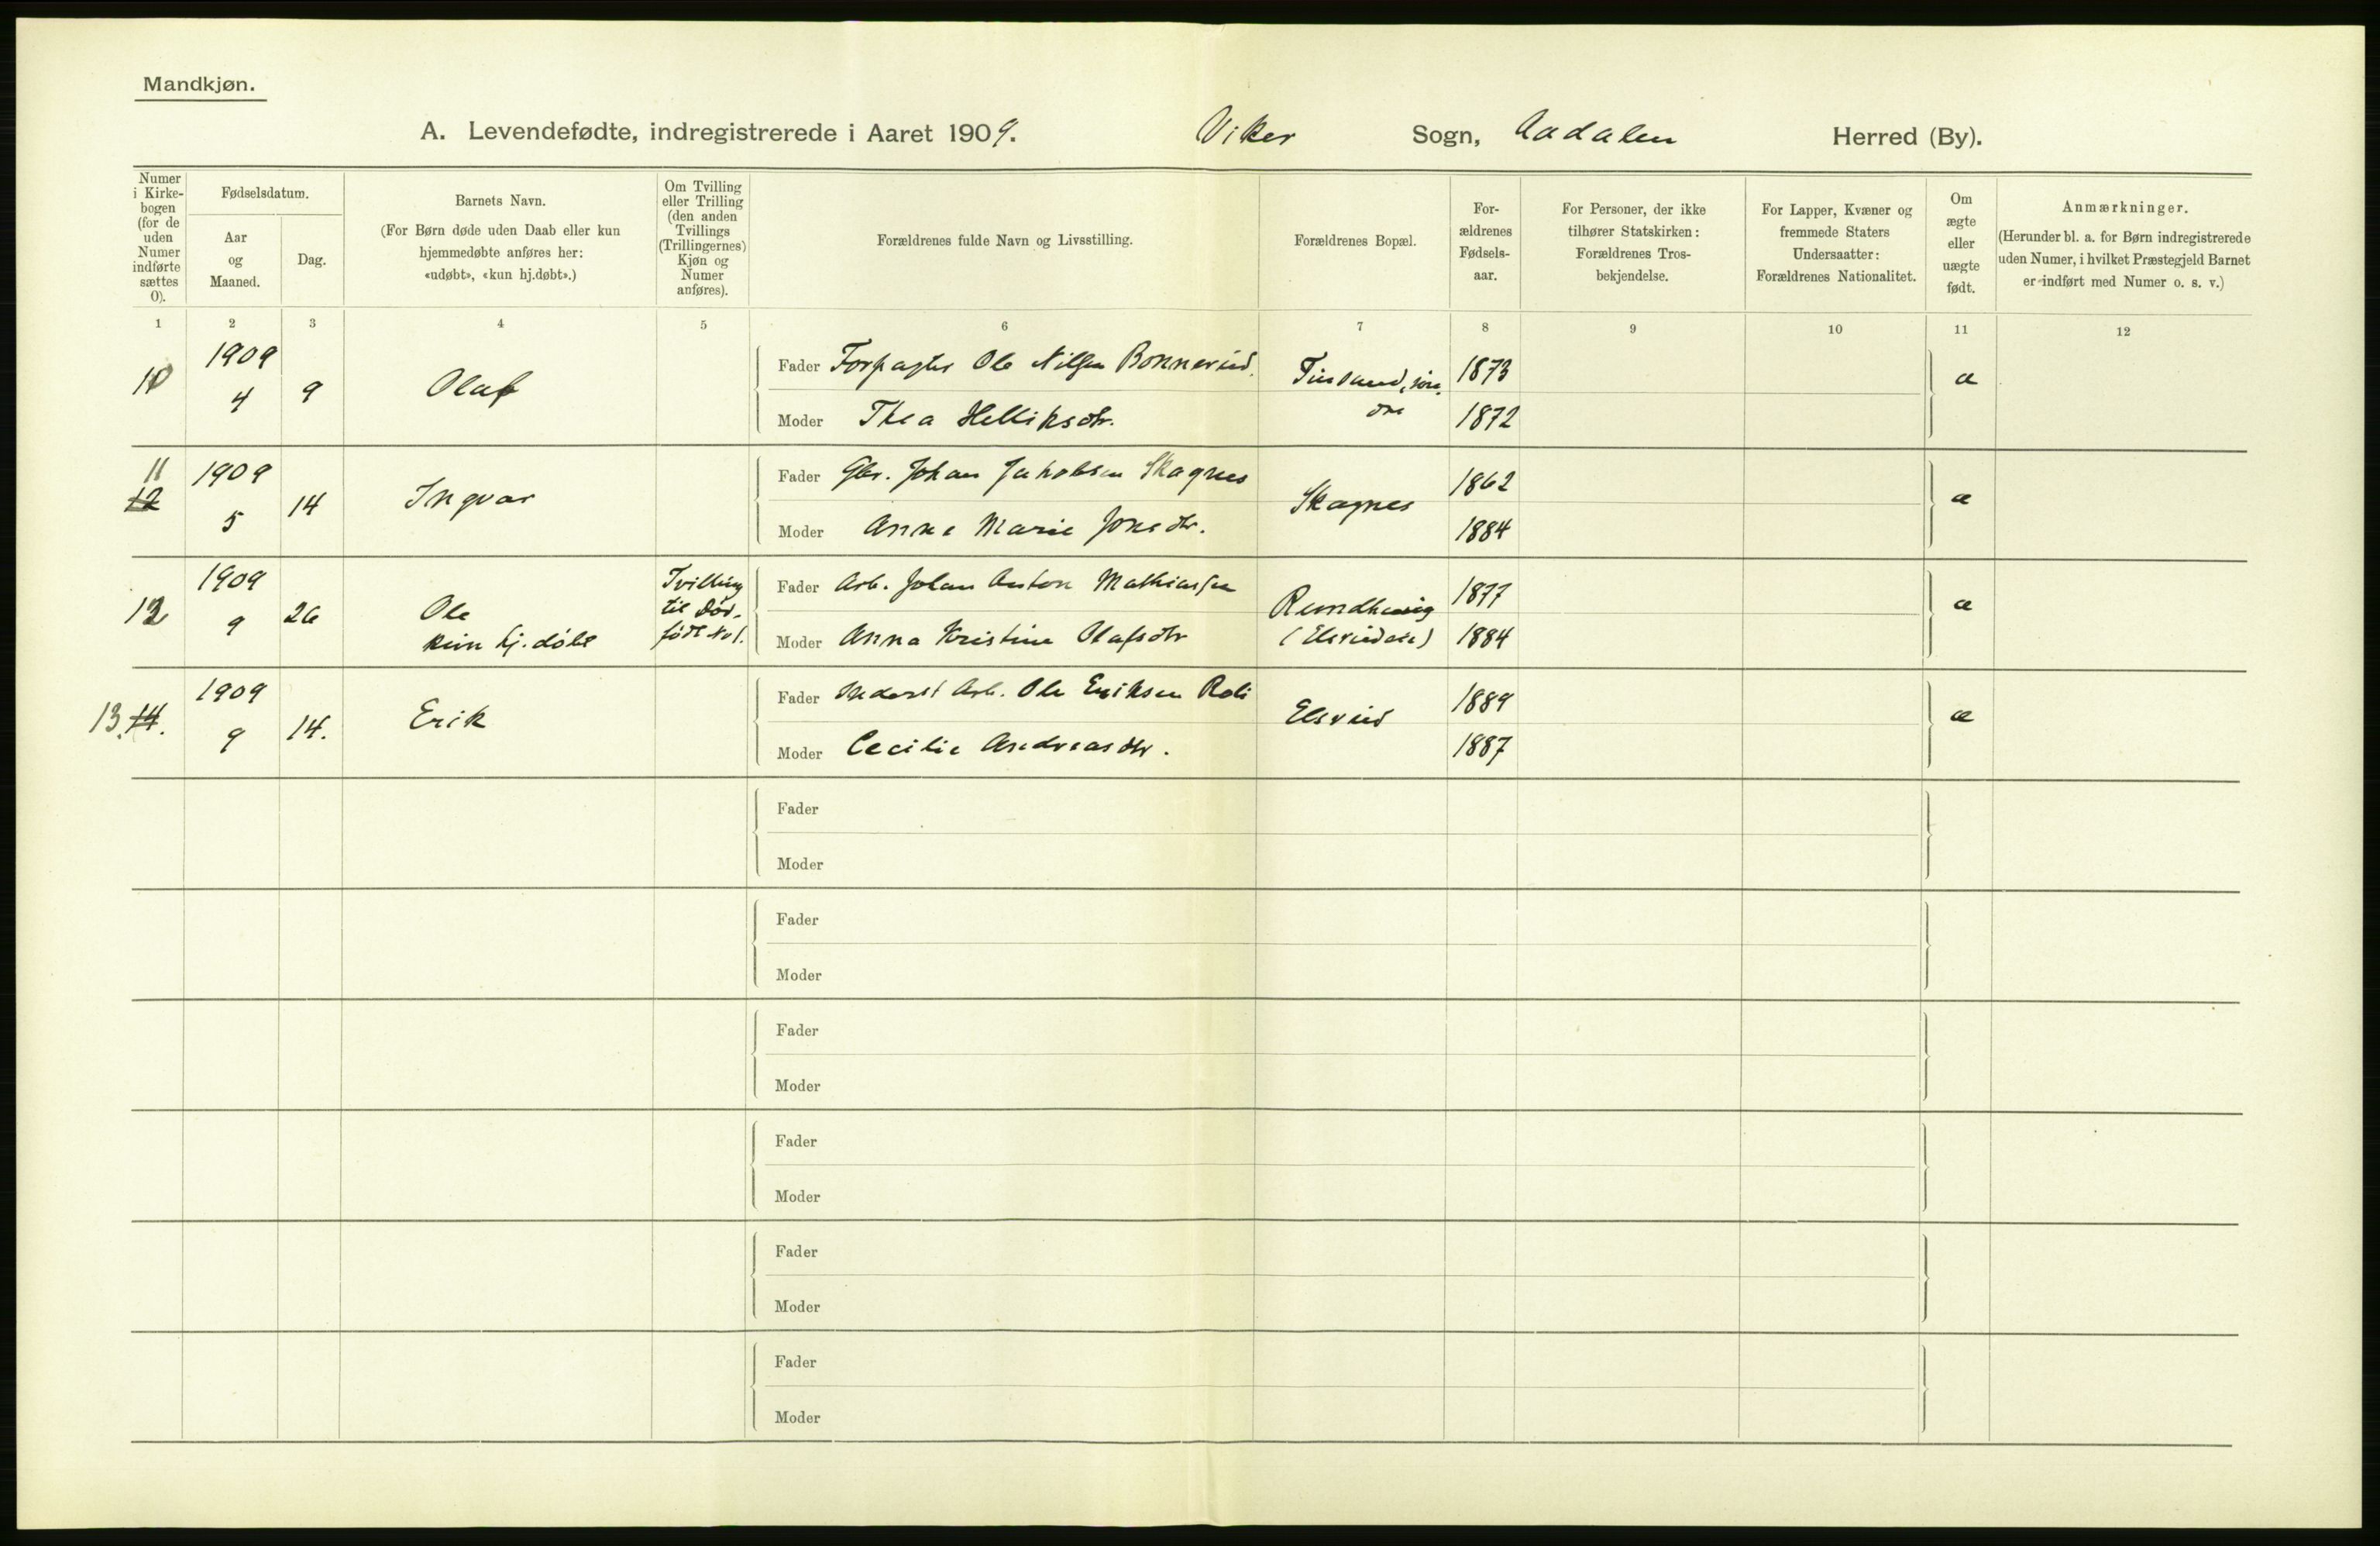 Mandkjøn.
A. Levendefødte, indregistrerede i Aaret 1909. Viker Sogn, Aadalen Herred (By).
Numer i Kirke-bogen (for de uden Numer indførte sættes 0).
Fødselsdatum.
Aar og Maaned.
Dag.
Barnets Navn.
(For Børn døde uden Daab eller kun hjemmedøbte anføres her: «udøbt», «kun hj.døbt».)
Om Tvilling eller Trilling (den anden Tvillings (Trillingernes) Kjøn og Numer anføres).
Forældrenes fulde Navn og Livsstilling.
Forældrenes Bopæl.
For-ældrenes Fødsels-aar.
For Personer, der ikke tilhører Statskirken: Forældrenes Tros-bekjendelse.
For Lapper, Kvæner og fremmede Staters Undersaatter: Forældrenes Nationalitet.
Om ægte eller uægte født.
Anmærkninger.
(Herunder bl. a. for Børn indregistrerede uden Numer, i hvilket Præstegjeld Barnet er indført med Numer o. s. v.)
1 2 3 4 5 6 7 8 9 10 11 12
10 1909 4 9 Olaf
Fader Forpagter Ole Nilsen Bonnerud. 1873 æ
Moder Thea Helliksdtr. 1872
11 12 1909 5 14 Ingvar
Fader Gbr. Johan Jakobsen Skagnes Skagnes 1862 æ
Moder Anne Marie Jonsdtr. 1884
12 1909 9 26 Ole
kun hj. døbt
Tvilling
til Død-
født No 1.
Fader Arb. Johan Anton Mathiassen 1877 æ
Moder Anna Kristine Olafsdtr 1884
13. 14. 1909 9 14. Erik
Fader Inderst Arb. Ole Eriksen Roli Elsrud 1889 æ
Moder Cecilie Andreasdtr. 1887
Fader
Moder
Fader
Moder
Fader
Moder
Fader
Moder
Fader
Moder
Fader
Moder